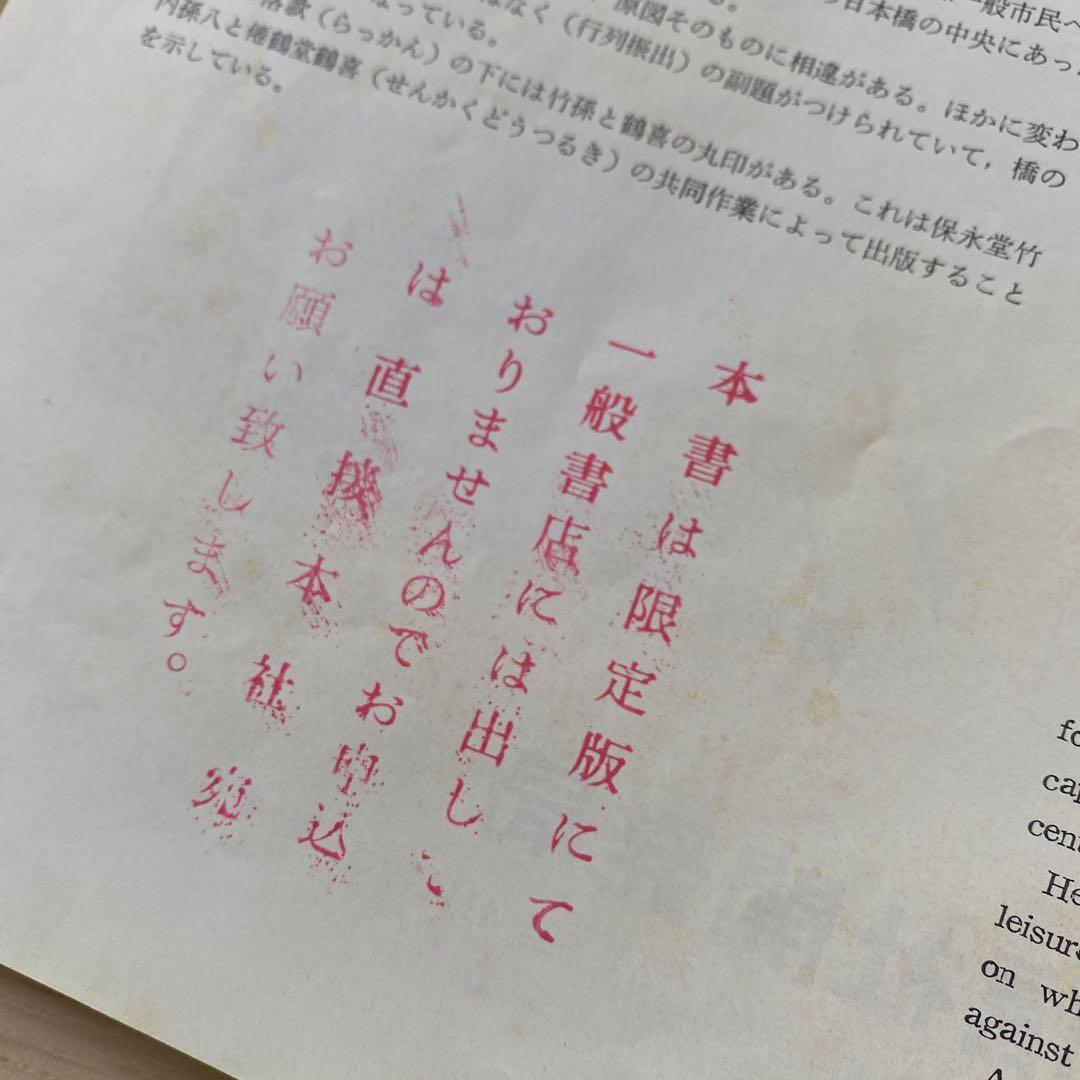 般市民へ
の日本橋の中央にあった
る。
原図そのものに相違がある。ほかに変わ
はなく（行列振出）の副題がつけられていて，橋の
なっている。
落款（らっかん）の下には竹孫と鶴喜の丸印がある。これは保永堂竹
内孫八と僊鶴堂鶴喜（せんかくどうつるき）の共同作業によって出版すること
を示している。
本書は限定版にて
一般書店には出し
おりませんのでお申込
は直接本社宛
お願い致します。
fo
cap
cent
He
leisura
on wh
against